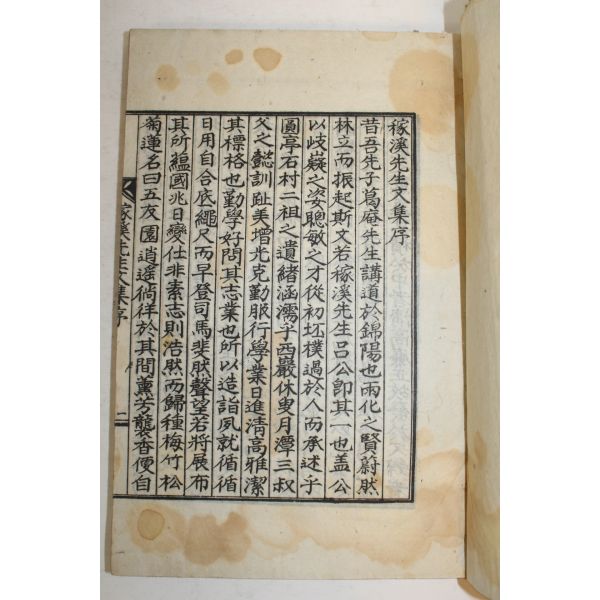 稼溪先生文集序
昔吾先子葛庵先生講道於錦陽也雨化之賢蔚然
林立而振起斯文若稼溪先生呂公卽其一也盖公
以歧嶷之姿聰敏之才從初坯樸過於人而承述乎
圓亭石村二祖之遺緒涵濡乎西巖休叟月潭三叔
父之懿訓趾美增光克勤服行學業日進淸高雅潔
其標格也勤學好問其志業也所以造詣夙就循循
日用自合底繩尺而早登司馬斐然聲望若將展布
其所蘊國兆日變仕非素志則浩然而歸種梅竹松
菊蓮名曰五友園逍遥徜徉於其間薰芳襲香便自
稼溪先生文集序